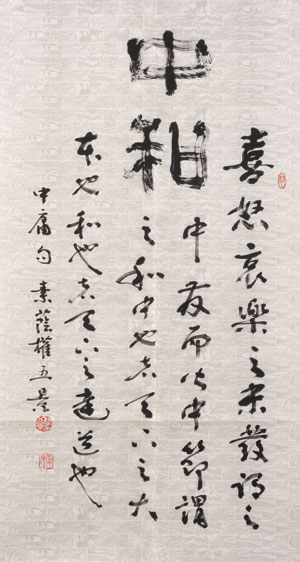 中和
喜怒哀樂之未發謂之
中發而皆中節謂
之和中也者天下之大
本也和也者天下之達道也
中庸句 素蔭權五